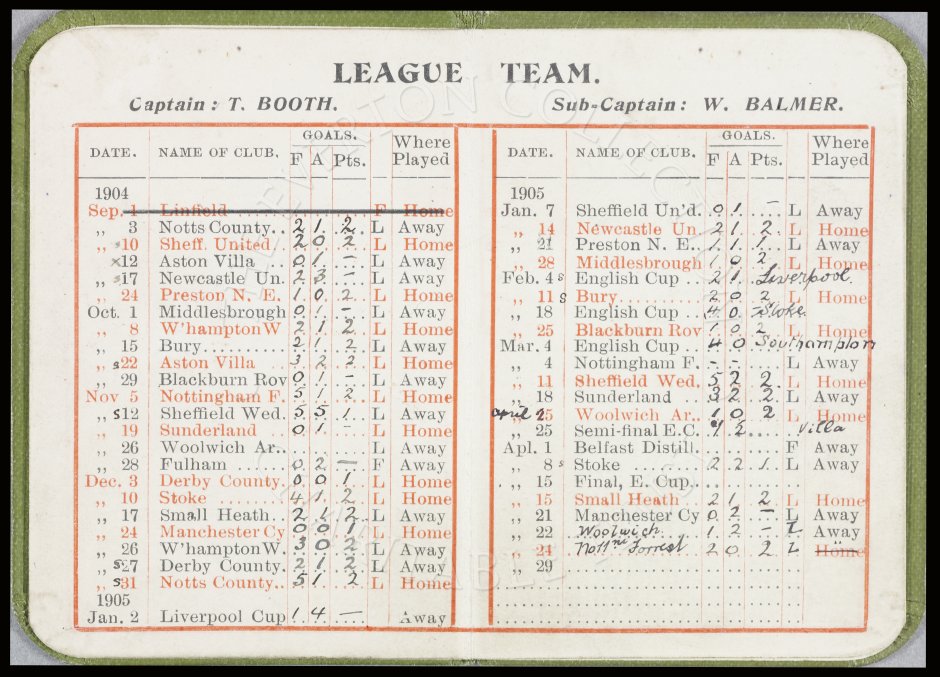 LEAGUE TEAM.
Captain: T. BOOTH. Sub-Captain: W. BALMER.
DATE. NAME OF CLUB. GOALS. F A Pts. Where Played
1904
Sep. 1 Linfield F Home
„ 3 Notts County.. 2 1 2 L Away
„ s10 Sheff. United. 2 0 2 L Home
x12 Aston Villa .. 0 1 – L Away
„ s17 Newcastle Un. 2 3 – L Away
„ 24 Preston N. E. 1 0 2 L Home
Oct. 1 Middlesbrough 0 1 – L Away
„ 8 W'hampton W 2 1 2 L Home
„ 15 Bury 2 1 2 L Away
„ s22 Aston Villa .. 3 2 2 L Home
„ 29 Blackburn Rov 0 1 – L Away
Nov 5 Nottingham F. 5 1 2 L Home
„ s12 Sheffield Wed. 5 5 1 L Away
„ 19 Sunderland .. 0 1 – L Home
„ 26 Woolwich Ar.. L Away
„ 28 Fulham 0 2 – F Away
Dec. 3 Derby County. 0 0 1 L Home
„ 10 Stoke 4 1 2 L Home
„ 17 Small Heath.. 2 1 2 L Away
„ 24 Manchester Cy 0 0 1 L Home
„ 26 W'hampton W. 3 0 2 L Away
„ s27 Derby County. 2 1 2 L Away
„ s31 Notts County.. 5 1 2 L Home
1905
Jan. 2 Liverpool Cup 1 4 – Away
DATE. NAME OF CLUB. GOALS. F A Pts. Where Played
1905
Jan. 7 Sheffield Un'd. 0 1 – L Away
„ 14 Newcastle Un. 2 1 2 L Home
„ 21 Preston N. E.. 1 1 1 L Away
„ 28 Middlesbrough 1 0 2 L Home
Feb. 4 s English Cup .. 2 1 Liverpool
„ 11 s Bury 2 0 2 L Home
„ 18 English Cup .. 4 0 – Stoke
„ 25 Blackburn Rov 1 0 2 L Home
Mar. 4 English Cup .. 4 0 Southampton
„ 4 Nottingham F. – – L Away
„ 11 Sheffield Wed. 5 2 2 L Home
„ 18 Sunderland .. 3 2 2 L Away
april „ 25 Woolwich Ar.. 1 0 2 L Home
„ 25 Semi-final E.C. 2 Villa
Apl. 1 Belfast Distill. F Away
„ 8 s Stoke 2 2 1 L Away
„ 15 Final, E. Cup,
15 Small Heath .. 2 1 2 L Home
„ 21 Manchester Cy 0 2 – L Away
„ 22 Woolwich 1 2 – L Away
„ 24 Nottm Forrest 2 0 2 L Home
„ 29